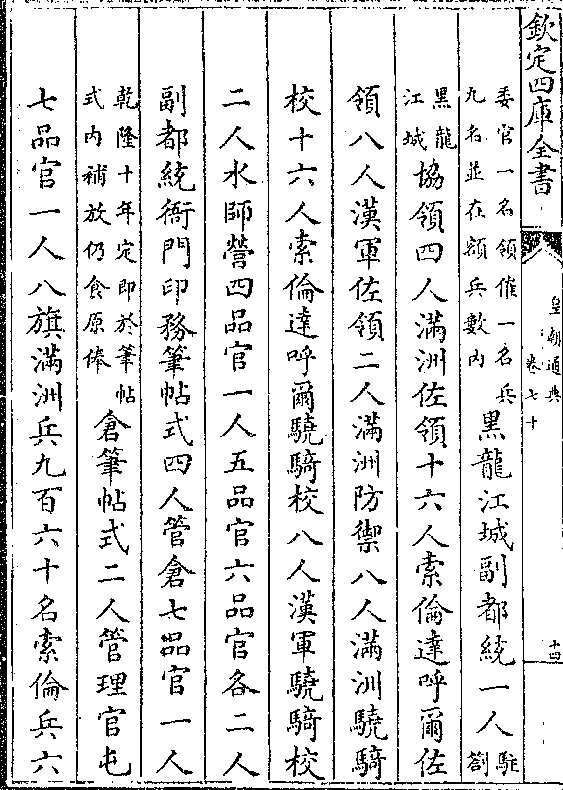 欽定四庫全書
皇朝通典
卷七十
十四
委官一名領催一名兵
九名並在額兵數內
黑龍江城副都統一人
駐
劄
黑龍
江城
協領四人滿洲佐領十六人索倫達呼爾佐
領八人漢軍佐領二人滿洲防禦八人滿洲驍騎
校十六人索倫達呼爾驍騎校八人漢軍驍騎校
二人水師營四品官一人五品官六品官各二人
副都統衙門印務筆帖式四人管倉七品官一人
乾隆十年定即於筆帖
式內補放仍食原俸
倉筆帖式二人管理官屯
七品官一人八旗滿洲兵九百六十名索倫兵六